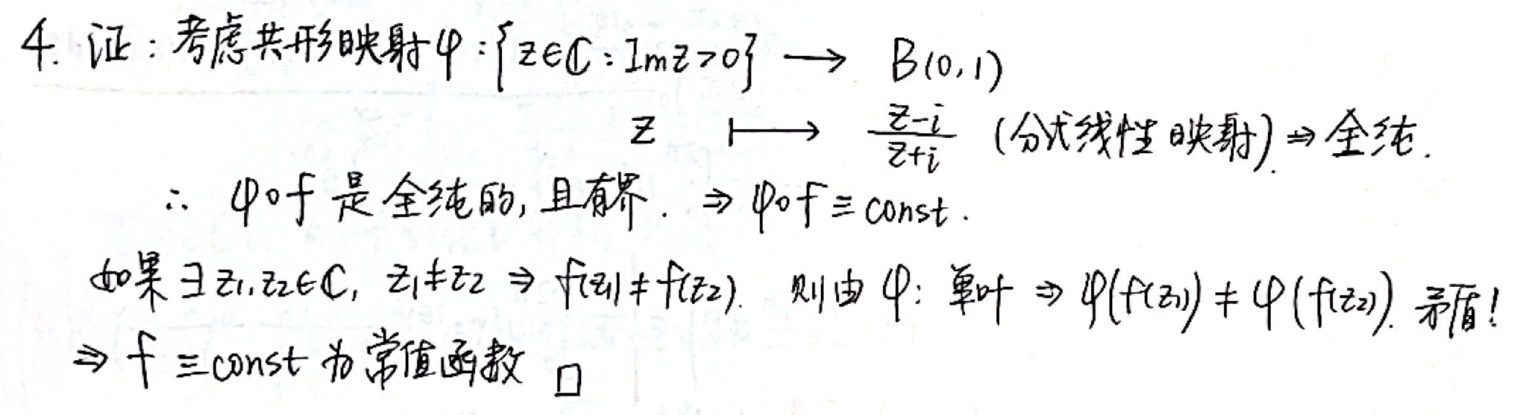 4. 证：考虑共形映射φ：{z∈ℂ：Imz>0} ⟶ B(0,1)
z ⟼ \frac{z-i}{z+i} (分式线性映射). ⇒ 全纯.
∴ φ∘f 是全纯的, 且有界. ⇒ φ∘f ≡ const.
如果 ∃ z₁,z₂∈ℂ, z₁≠z₂ ⇒ f(z₁)≠f(z₂). 则由 φ: 单叶 ⇒ φ(f(z₁)) ≠ φ(f(z₂)). 矛盾!
⇒ f ≡ const 为常值函数 □